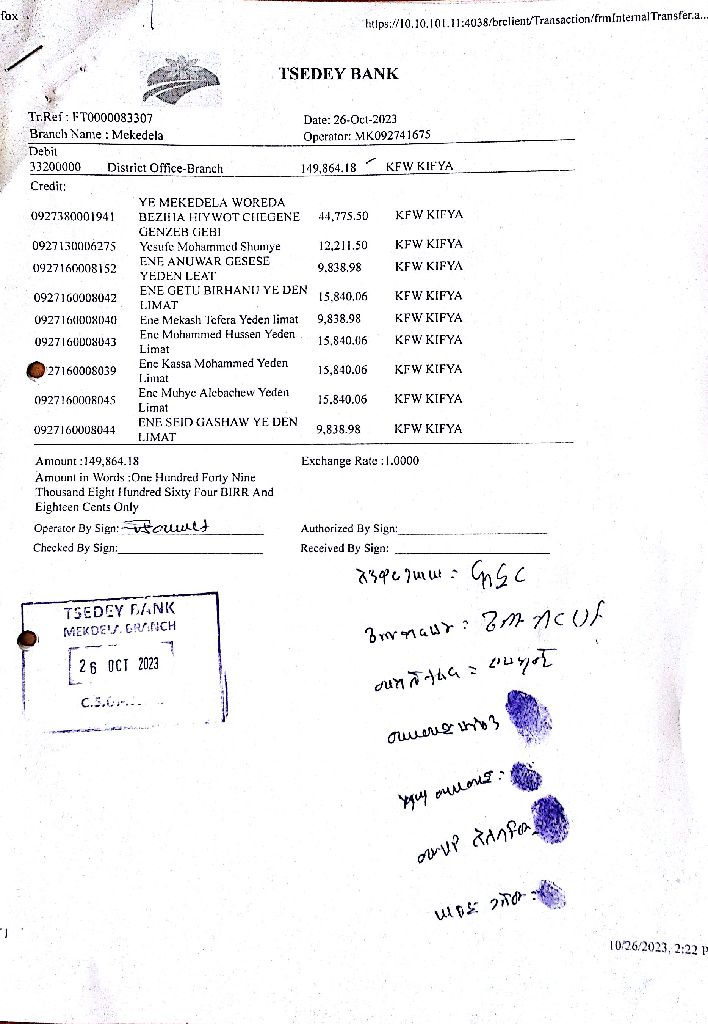 fox
https://10.10.101.11:4038/brclient/Transaction/frmInternalTransfer.a...
TSEDEY BANK
Tr.Ref : FT0000083307 Date: 26-Oct-2023
Branch Name : Mekedela Operator: MK092741675
Debit
33200000 District Office-Branch 149,864.18 KFW KIFYA
Credit:
YE MEKEDELA WOREDA
0927380001941 BEZIHA HIYWOT CHEGENE 44,775.50 KFW KIFYA
GENZEB GEBI
0927130006275 Yesufe Mohammed Shumye 12,211.50 KFW KIFYA
0927160008152 ENE ANUWAR GESESE 9,838.98 KFW KIFYA
YEDEN LEAT
0927160008042 ENE GETU BIRHANU YE DEN 15,840.06 KFW KIFYA
LIMAT
0927160008040 Ene Mekash Tefera Yeden limat 9,838.98 KFW KIFYA
0927160008043 Ene Mohammed Hussen Yeden 15,840.06 KFW KIFYA
Limat
27160008039 Ene Kassa Mohammed Yeden 15,840.06 KFW KIFYA
Limat
0927160008045 Ene Muhye Alebachew Yeden 15,840.06 KFW KIFYA
Limat
0927160008044 ENE SEID GASHAW YE DEN 9,838.98 KFW KIFYA
LIMAT
Amount :149,864.18 Exchange Rate :1.0000
Amount in Words :One Hundred Forty Nine
Thousand Eight Hundred Sixty Four BIRR And
Eighteen Cents Only
Operator By Sign: Authorized By Sign:
Checked By Sign: Received By Sign:
TSEDEY BANK
MEKDELA BRANCH
26 OCT 2023
10/26/2023, 2:22 P